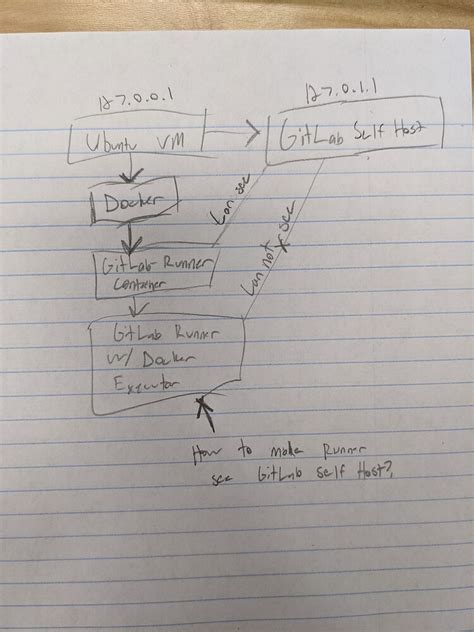 127.0.0.1
127.0.1.1
Ubuntu VM
GitLab Self Host
Docker
Can see
GitLab-Runner
Container
Can not see
GitLab Runner
w/ Docker
Executor
How to make Runner
see GitLab self Host?